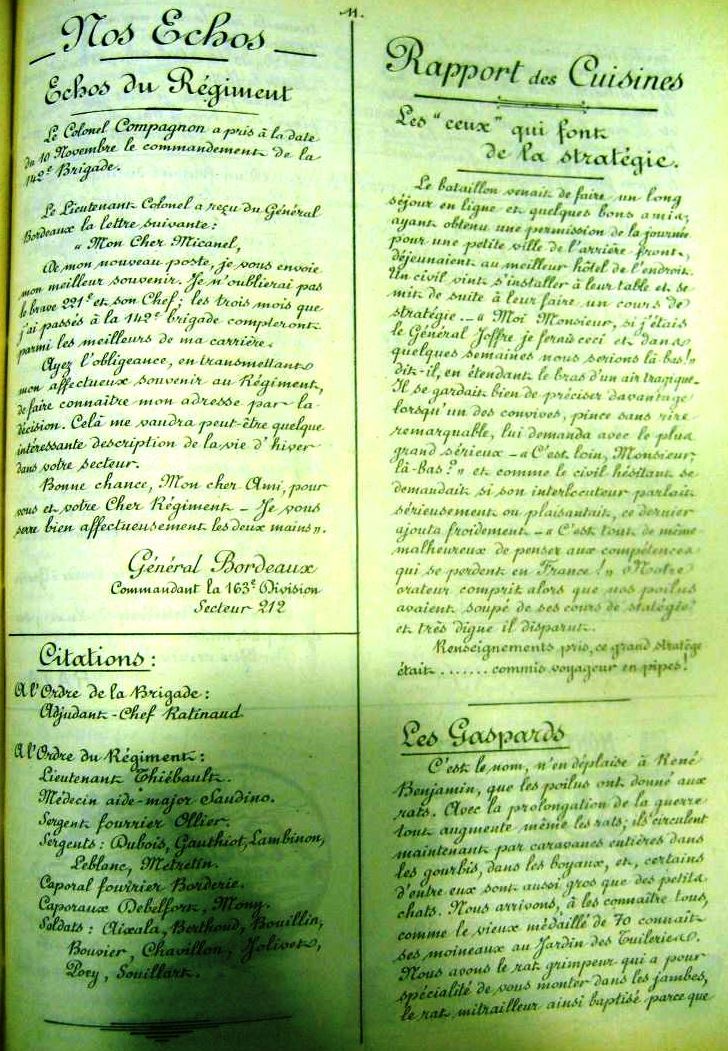 11.
Nos Echos
Echos du Régiment
Le Colonel Compagnon a pris à la date
du 10 Novembre le commandement de la
142e Brigade.
Le Lieutenant Colonel a reçu du Général
Bordeaux la lettre suivante :
« Mon Cher Micanel,
De mon nouveau poste, je vous envoie
mon meilleur souvenir. Je n'oublierai pas
le brave 221e et son Chef ; les trois mois que
j'ai passés à la 142e brigade compteront
parmi les meilleurs de ma carrière.
Ayez l'obligeance, en transmettant
mon affectueux souvenir au Régiment,
de faire connaître mon adresse par la
décision. Celà me vaudra peut-être quelque
intéressante description de la vie d'hiver
dans votre secteur.
Bonne chance, Mon cher Ami, pour
vous et votre Cher Régiment - Je vous
serre bien affectueusement les deux mains ».
Général Bordeaux
Commandant la 163e Division
Secteur 212
Citations :
A l'Ordre de la Brigade :
Adjudant-Chef Ratinaud
A l'Ordre du Régiment :
Lieutenant Thiébault.
Médecin aide-major Saudino.
Sergent fourrier Ollier.
Sergents : Dubois, Gauthiot, Lambinon,
Leblanc, Metretin.
Caporal fourrier Borderie.
Caporaux Debelfort, Mony.
Soldats : Aixala, Berthoud, Bouillin,
Bouvier, Chavillon, Jolivet,
Poey, Souillart.
Rapport des Cuisines
Les "ceux" qui font
de la stratégie.
Le bataillon venait de faire un long
séjour en ligne et quelques bons amis,
ayant obtenu une permission de la journée
pour une petite ville de l'arrière front,
déjeunaient au meilleur hôtel de l'endroit.
Un civil vint s'installer à leur table et se
mit de suite à leur faire un cours de
stratégie... « Moi Monsieur, si j'étais
le Général Joffre je ferais ceci et dans
quelques semaines nous serions là-bas !»
dit-il, en étendant le bras d'un air tragique.
Il se gardait bien de préciser davantage
lorsqu'un des convives, pince sans rire
remarquable, lui demanda avec le plus
grand sérieux - « C'est loin, Monsieur,
là-bas ? » et comme le civil hésitant se
demandait si son interlocuteur parlait
sérieusement ou plaisantait, ce dernier
ajouta froidement - « C'est tout de même
malheureux de penser aux compétences
qui se perdent en France ! » Notre
orateur comprit alors que nos poilus
avaient soupé de ses cours de statégie
et très digne il disparut.
Renseignements pris, ce grand stratège
était ....... commis voyageur en pipes !
Les Gaspards
C'est le nom, n'en déplaise à René
Benjamin, que les poilus ont donné aux
rats. Avec la prolongation de la guerre
tout augmente même les rats ; ils circulent
maintenant par caravanes entières dans
les gourbis, dans les boyaux, et, certains
d'entre eux sont aussi gros que des petits
chats. Nous arrivons, à les connaître tous,
comme le vieux médaillé de 70 connait
ses moineaux au Jardin des Tuileries.
Nous avons le rat grimpeur qui a pour
spécialité de vous monter dans les jambes,
le rat mitrailleur ainsi baptisé parce que